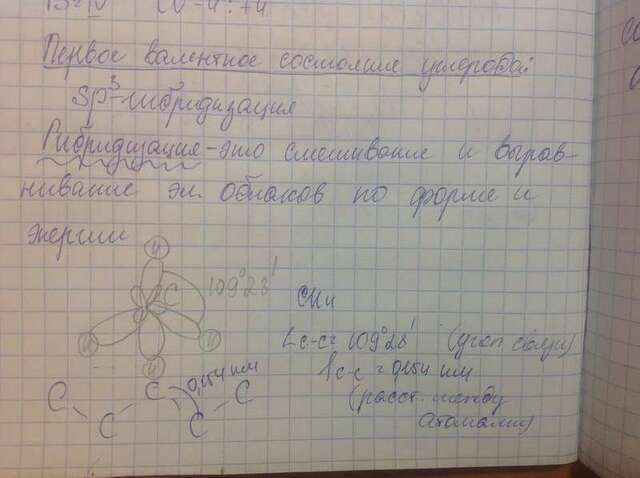 Первое валентное состояние углерода:
SP³-гибридизация
Гибридизация - это смешивание и вырав-
нивание эл. облаков по форме и
энергии
H
C 109°28'
CH4
H H
∠c-c = 109°28' (угол связи)
H
0,154 нм
lc-c = 0,154 нм
C C C C C
(расст. между
атомами)